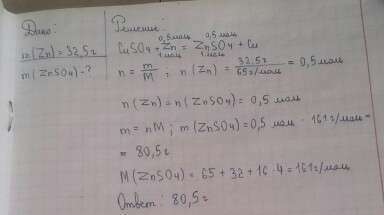 Дано:
m(Zn) = 32,5г
m(ZnSO4) - ?
Решение:
0,5 моль 0,5 моль
CuSO4 + Zn = ZnSO4 + Cu
1 моль 1 моль
n = m/M ; n(Zn) = 32,5г / 65г/моль = 0,5 моль
n(Zn) = n(ZnSO4) = 0,5 моль
m = nM ; m(ZnSO4) = 0,5 моль · 161г/моль =
= 80,5г
M(ZnSO4) = 65 + 32 + 16·4 = 161г/моль
Ответ: 80,5г